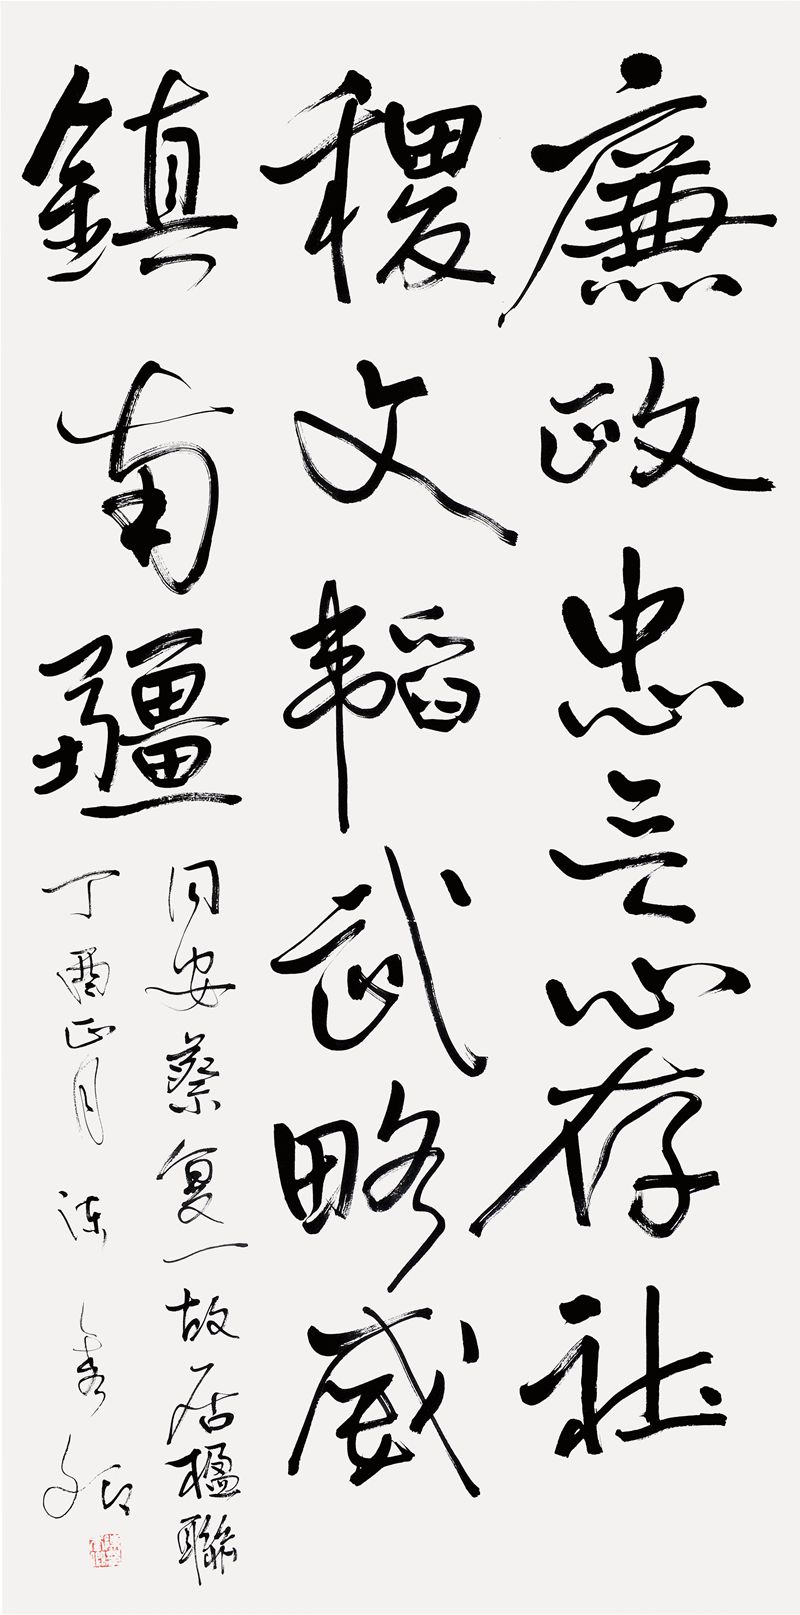 廉政忠言心存社
稷文韬武略威
鎮南疆
同安蔡复一故居楹聯
丁酉正月陈